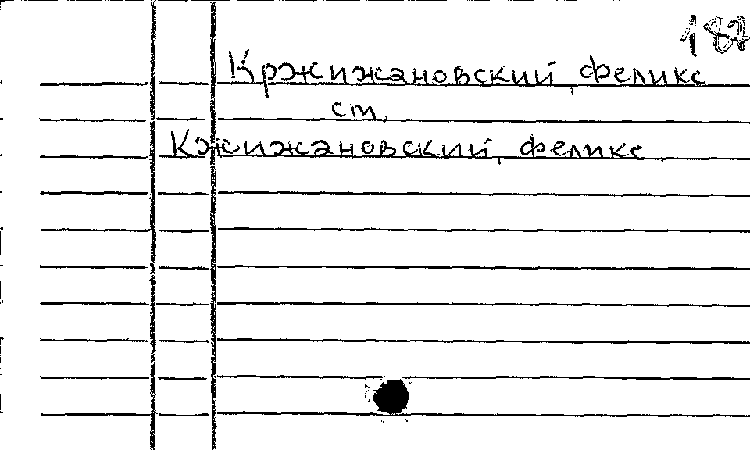 187
Кржижановский, Феликс
ст.
Кжижановский, Феликс